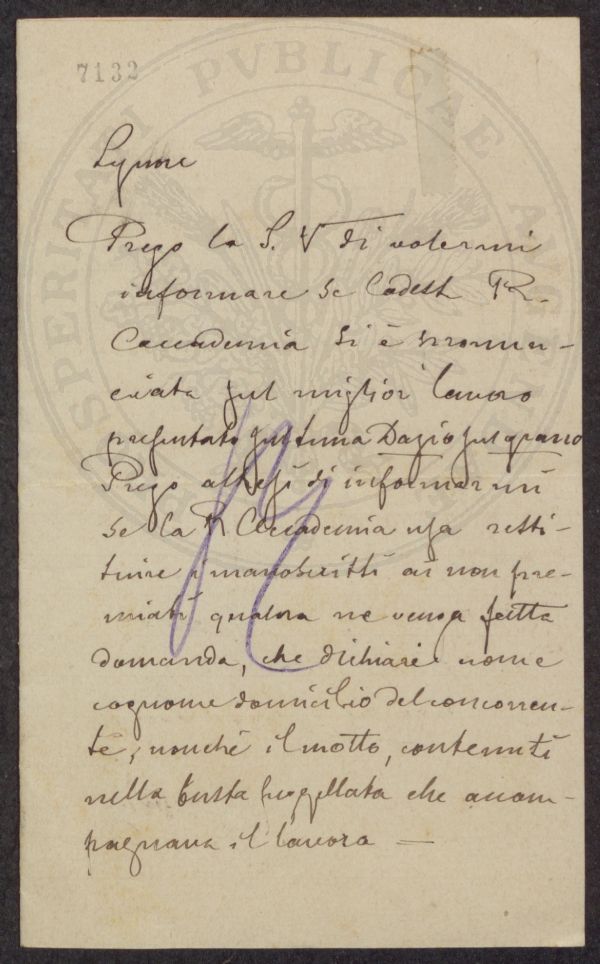 7132
PROSPERITATI PVBLICAE AVGENDAE
Signore
Prego la S. V di volermi
informare se Codesta R.
Accademia si è pronun-
ciata sul miglior lavoro
presentato sul tema Dazio sul grano
Prego altresì di informarmi
se la R Accademia usa resti-
tuire i manoscritti ai non pre-
miati qualora ne venga fatta
domanda, che dichiari nome
cognome domicilio del concorren-
te, nonché il motto, contenuti
nella busta suggellata che accom-
pagnava il lavoro —